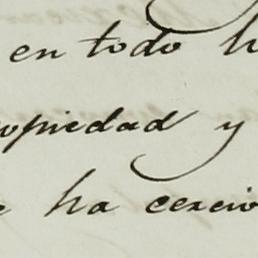 en todo h
opiedad y
ha cercio